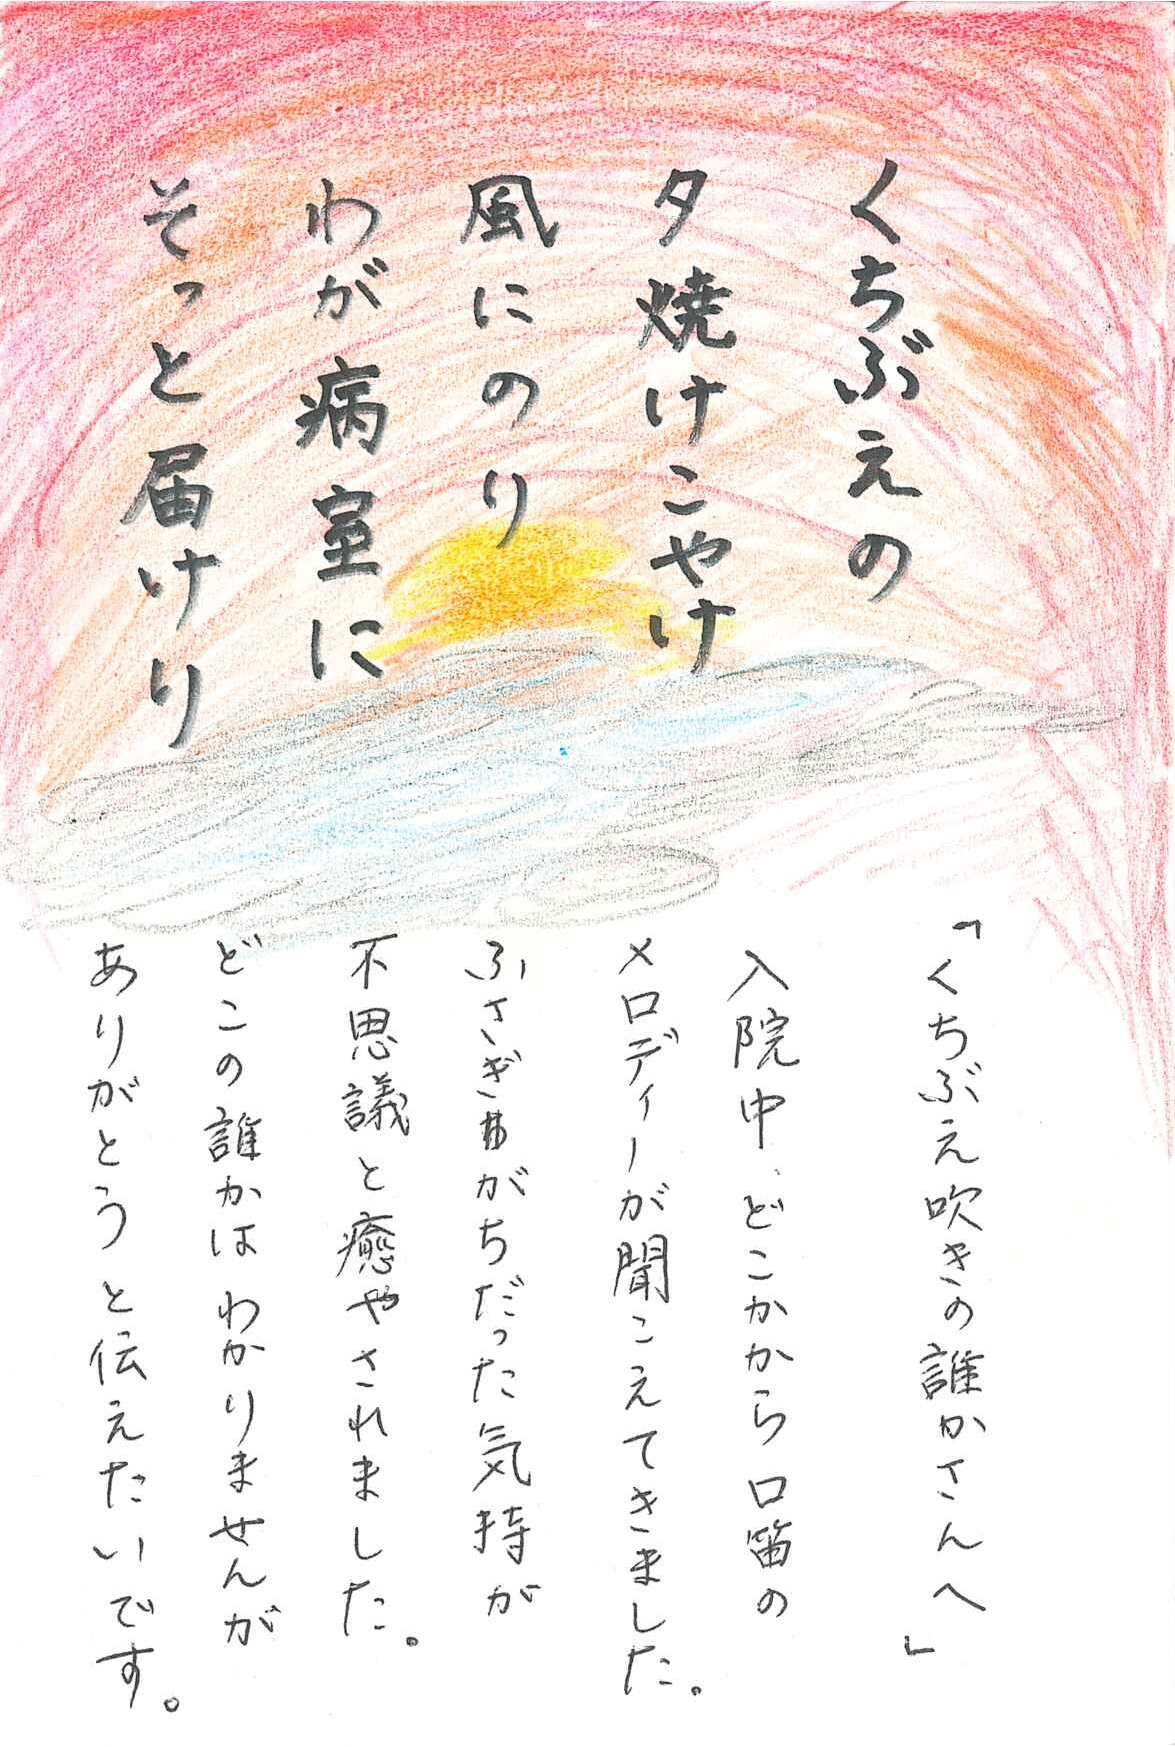 くちぶえの
夕焼けこやけ
風にのり
わが病室に
そっと届けり
「くちぶえ吹きの誰かさんへ」
入院中、どこかから口笛の
メロディーが聞こえてきました。
ふさぎがちだった気持が
不思議と癒やされました。
どこの誰かはわかりませんが
ありがとうと伝えたいです。